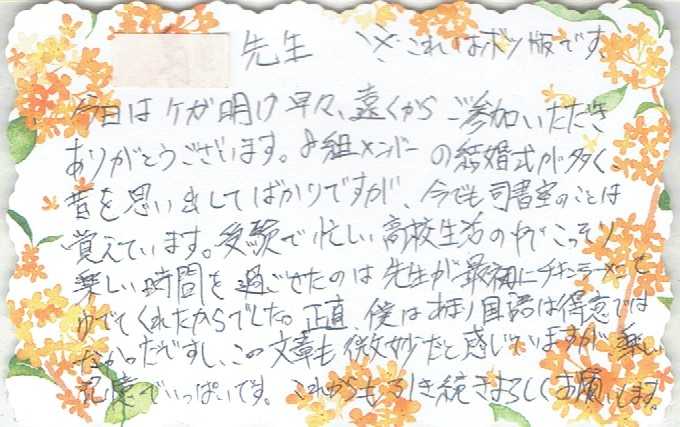 先生 ※これはボツ版です
今日はケガ明け早々、遠くからご参加いただき
ありがとうございます。8組メンバーの結婚式が多く、
昔を思い出してばかりですが、今でも司書室のことは
覚えています。受験で忙しい高校生活の中でこっそり
楽しい時間を過ごせたのは先生が最初にチキンラーメンを
ゆでてくれたからでした。正直、僕はあまり国語は得意では
なかったですし、この文章も微妙だと感じていますが、楽しい
記憶でいっぱいです。これからも引き続きよろしくお願いします。